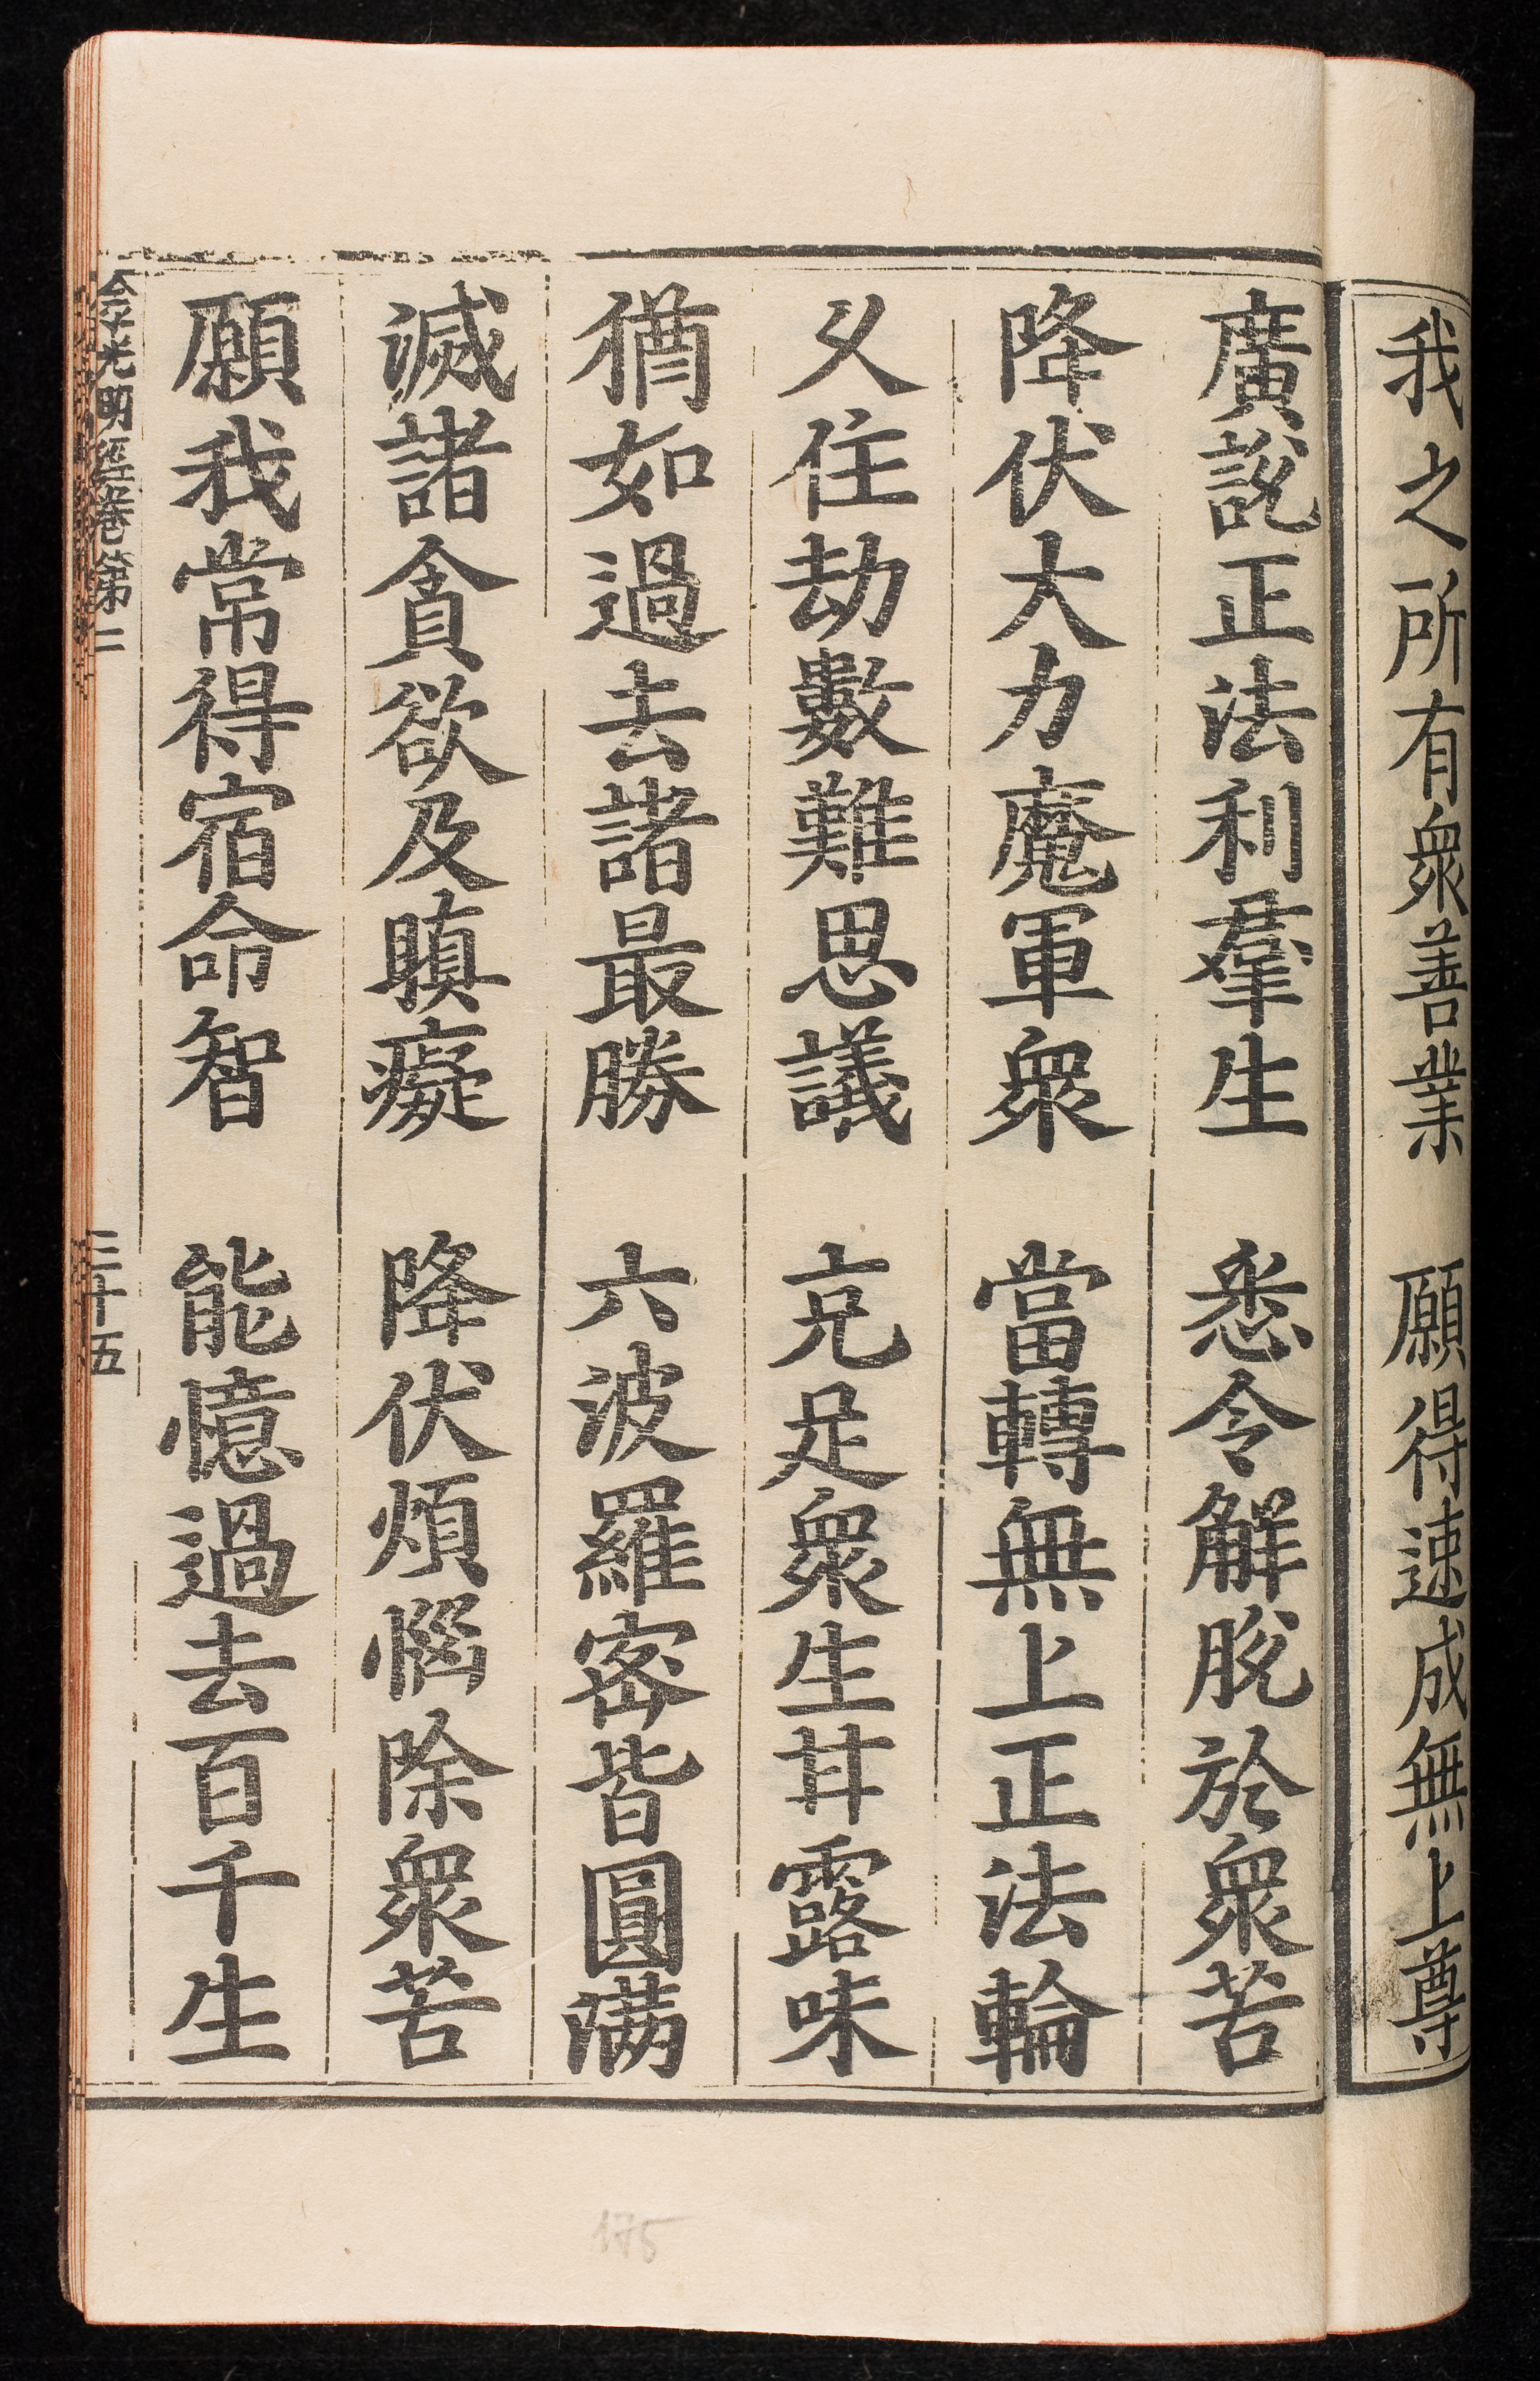 我之所有衆善業　願得速成無上尊
廣說正法利羣生　悉令解脫於衆苦
降伏大力魔軍衆　當轉無上正法輪
乆住劫數難思議　充足衆生甘露味
猶如過去諸最勝　六波羅密皆圓滿
滅諸貪欲及瞋癡　降伏煩惱除衆苦
願我常得宿命智　能憶過去百千生
金光明經卷第二　三十五
175